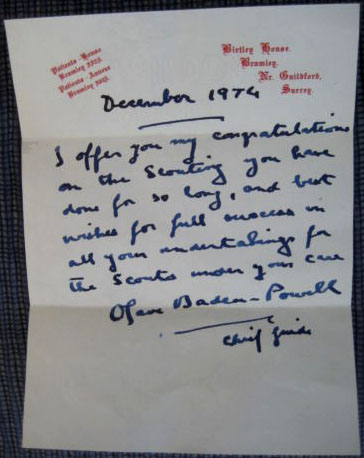 Patients - House
Bramley 3323.
Patients - Annexe
Bramley
Birtley House.
Bramley.
Nr. Guildford,
Surrey.
December 1974
I offer you my congratulations
on the Scouting you have
done for so long, and best
wishes for full success in
all your undertakings for
the Scouts under your care
Olave Baden-Powell
Chief Guide